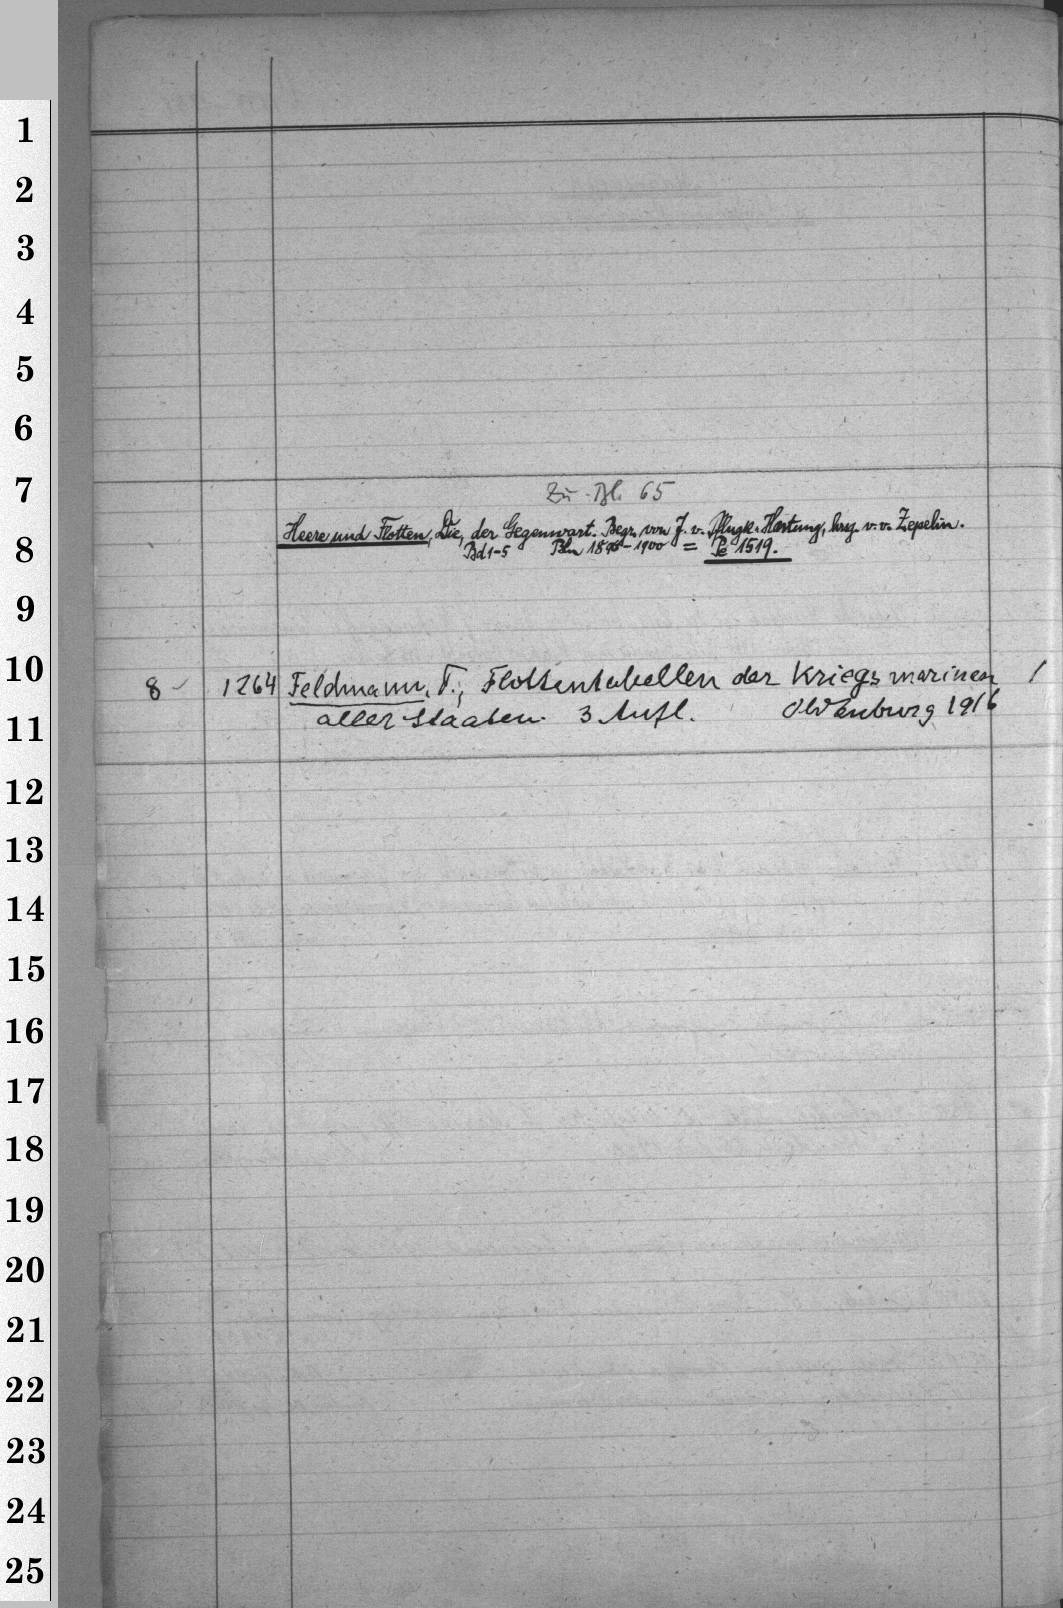 1
2
3
4
5
6
7
Zu Bl. 65
8
Heere und Flotten, Die, der Gegenwart. Begr. von J. v. Pflugk-Hartung, hrsg. v. v. Zepelin.
Bd 1-5 Bln 1896-1900 = Pe 1519.
9
10
8 - 1264 Feldmann, F., Flottentabellen der Kriegsmarinen /
aller Staaten. 3 Aufl. Oldenburg 1916
11
12
13
14
15
16
17
18
19
20
21
22
23
24
25